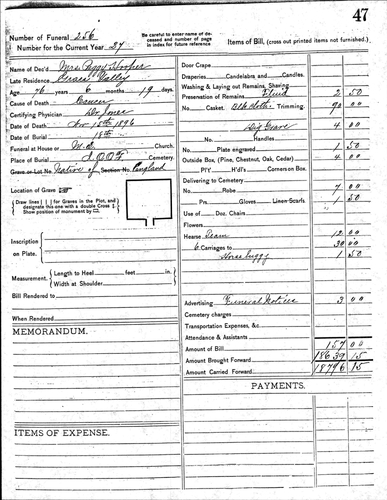 47
Number of Funeral 256
Number for the Current Year 27
Be carefully to enter name of deceased and number of page in index for future reference.
Items of Bill, (cross out printed items not furnished.)
Name of Dec'd Mrs Peggy Hooper
Late Residence Grass Valley
Age 76 years 6 months 19 days
Cause of Death Cancer
Certifying Physician Dr Jones
Date of Death Nov 15th 1896
Date of Burial 18th
Funeral at House or M.E. Church.
Place of Burial I.O.O.F Cemetery.
Grave or Lot No. Native of Section No. England
Location of Grave
Draw lines [ ] for Graves in the Plot, and designate this one with a double Cross
Show position of monument by
Inscription
on Plate.
Measurement. Length to Heel feet in.
Width at Shoulder
Bill Rendered to
When Rendered
MEMORANDUM.
ITEMS OF EXPENSE.
Door Crape
Draperies Candelabra and Candles.
Washing & Laying out Remains, Shaving
Preservation of Remains Fluid 2 50
No. Casket. Blk Cloth Trimming. 90 00
Dig Grave 4 00
No. Handles
Plate engraved 1 50
Outside Box, (Pine, Chestnut, Oak, Cedar) 4 00
P't'y H'd's Corners on Box.
Delivering to Cemetery
No. Robe 7 00
Prs. Gloves Linen Scarfs. 1 50
Use of Doz. Chairs
Flowers
Hearse Team 12 00
6 Carriages to 30 00
Horse buggy 1 50
Advertising Funeral Notices 3 00
Cemetery charges
Transportation Expenses, &c
Attendance & Assistants
Amount of Bill 157 00
Amount Brought Forward 18639 15
Amount Carried Forward 18796 15
PAYMENTS.